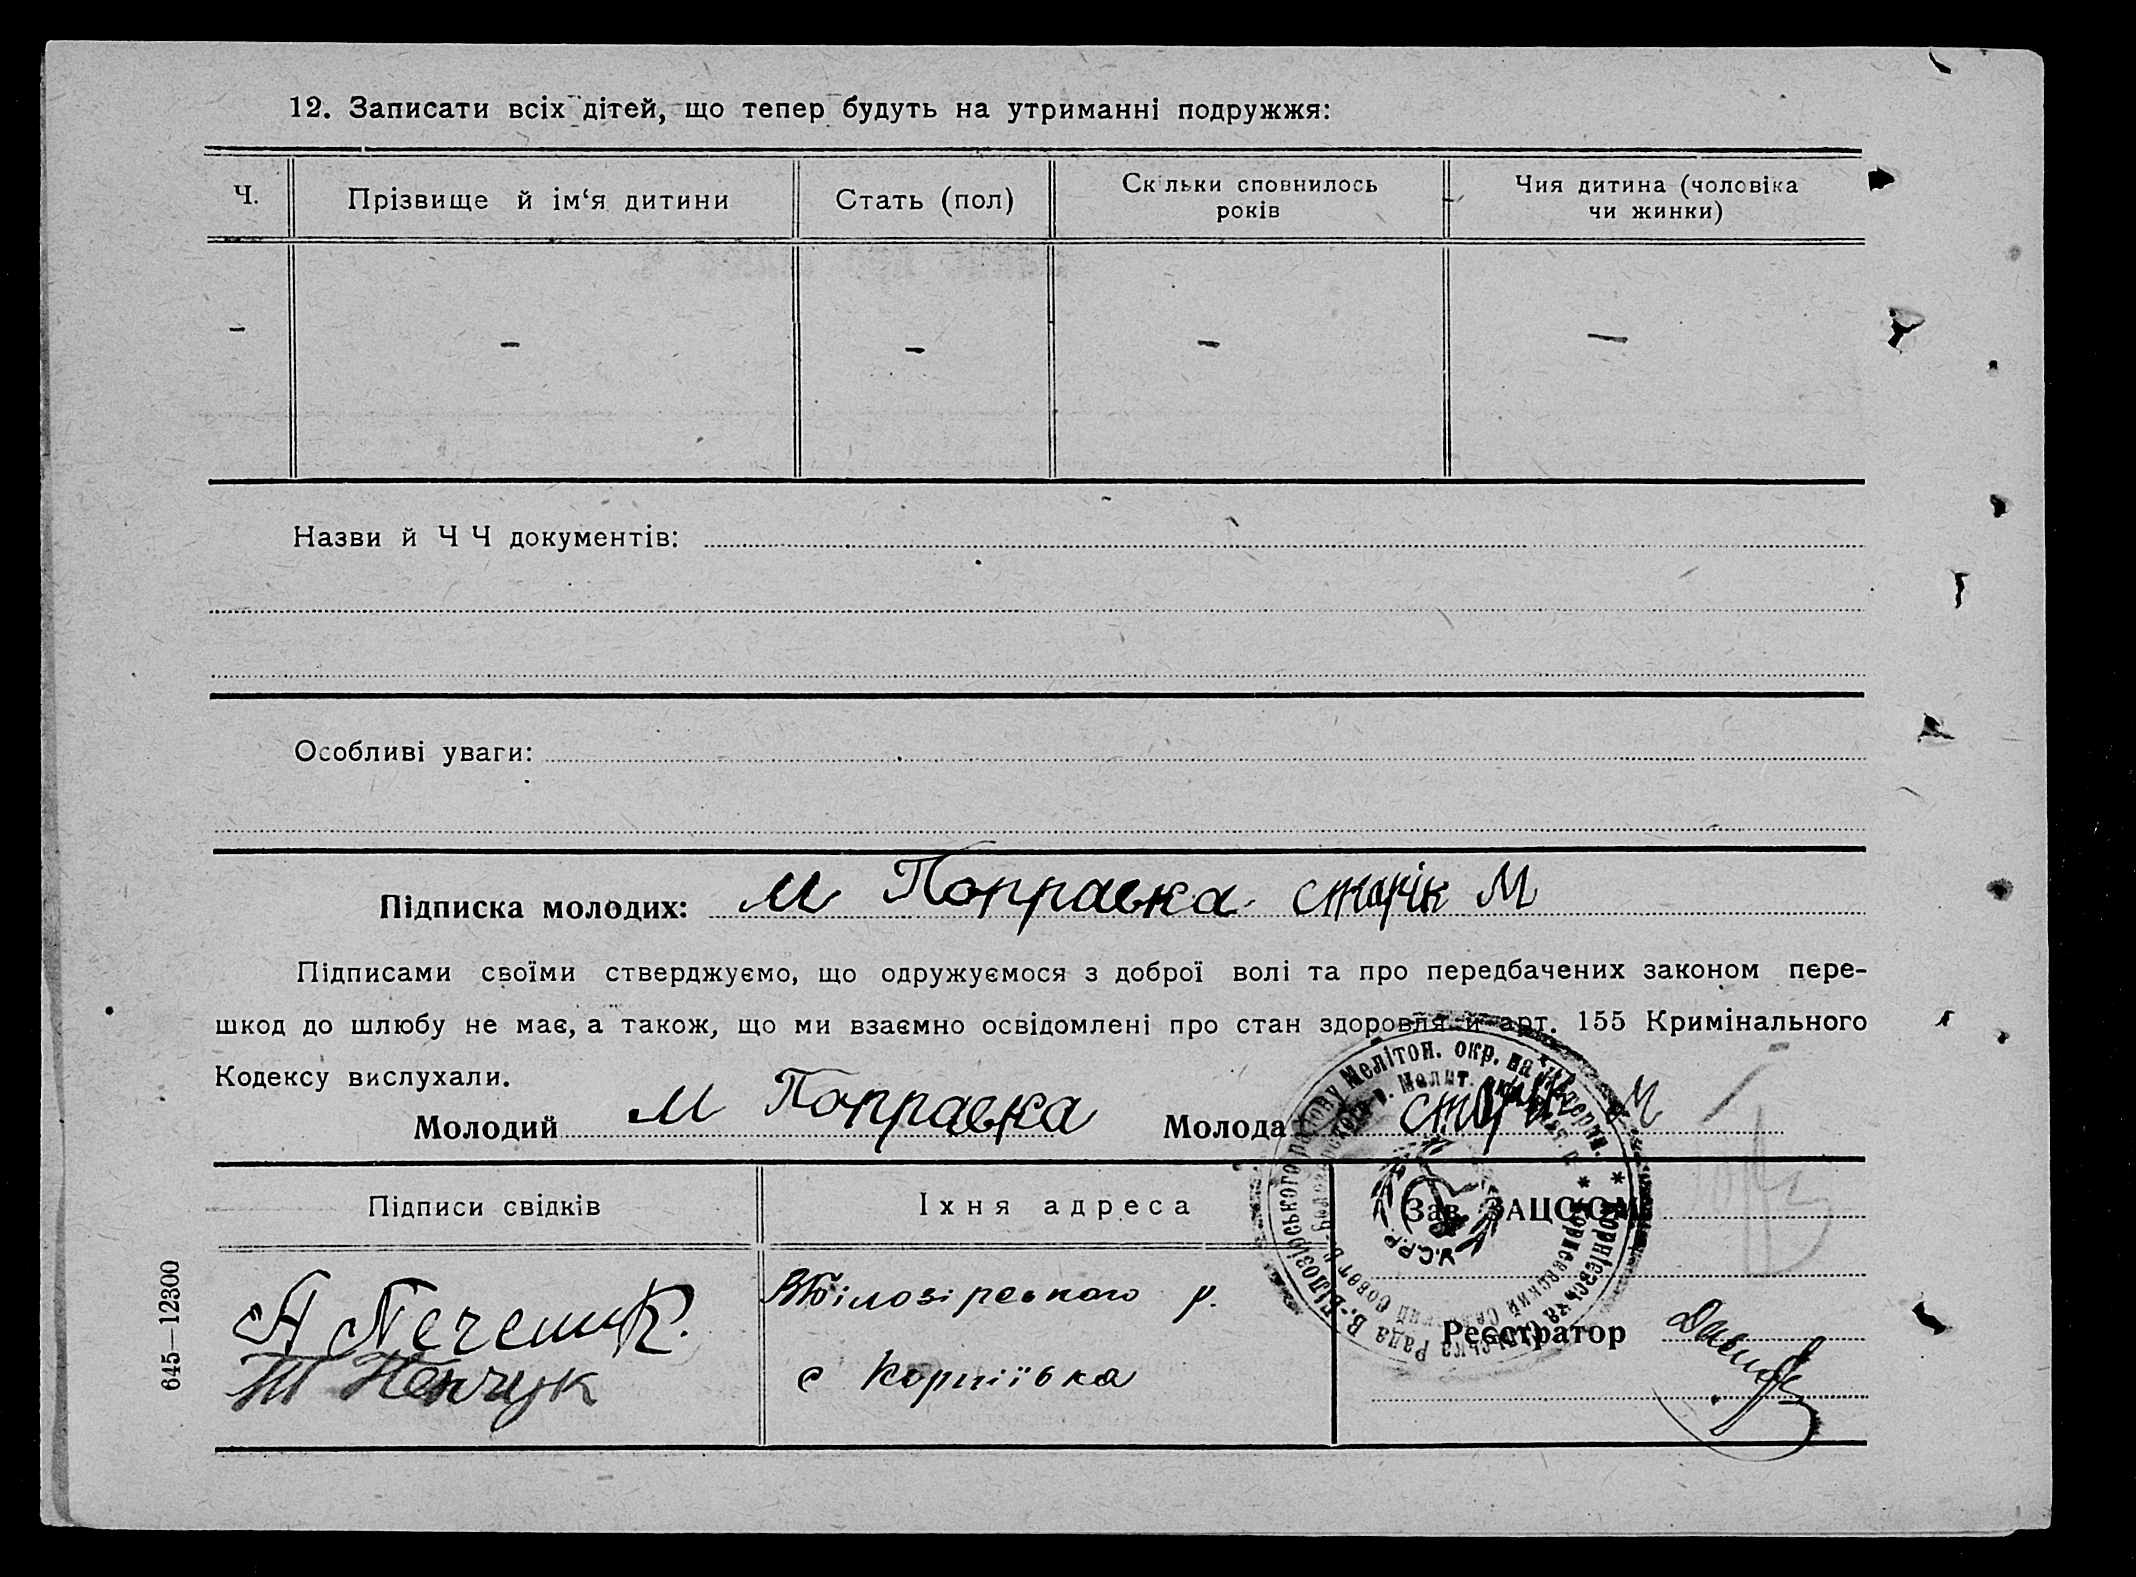 12. Записати всіх дітей, що тепер будуть на утриманні подружжя:
Ч.
Прізвище й ім‘я дитини
Стать (пол)
Скільки сповнилось років
Чия дитина (чоловіка чи жинки)
– – – – —
Назви й Ч Ч документів:
Особливі уваги:
Підписка молодих: М Поправка. старік М
Підписами своїми стверджуємо, що одружуємося з доброї волі та про передбачених законом пере-
шкод до шлюбу не має, а також, що ми взаємно освідомлені про стан здоровля й арт. 155 Кримінального
Кодексу вислухали.
Молодий М Поправка Молода старік М
Підписи свідків
Їхня адреса
Зав. ЗАЦСОМ
А
ВБілозірського р.
с Корніївка
Реєстратор
Мелітоп. окр. на
Корнієвська
Рада В.-Білозірського
У.С.Р.Р.
645—12300